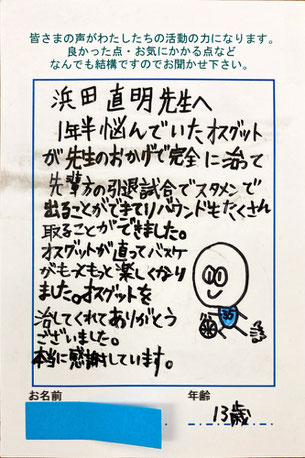 皆さまの声がわたしたちの活動の力になります。
良かった点・お気にかかる点など
なんでも結構ですのでお聞かせ下さい。
浜田直明先生へ
1年半悩んでいたオスグット
が先生のおかげで完全に治って
先輩方の引退試合でスタメンで
出ることができてリバウンドもたくさん
取ることができました。
オスグットが直ってバスケ
がもっともっと楽しくなり
ました。オスグットを
治してくれてありがとう
ございました。
本当に感謝しています。
お名前
年齢
13歳